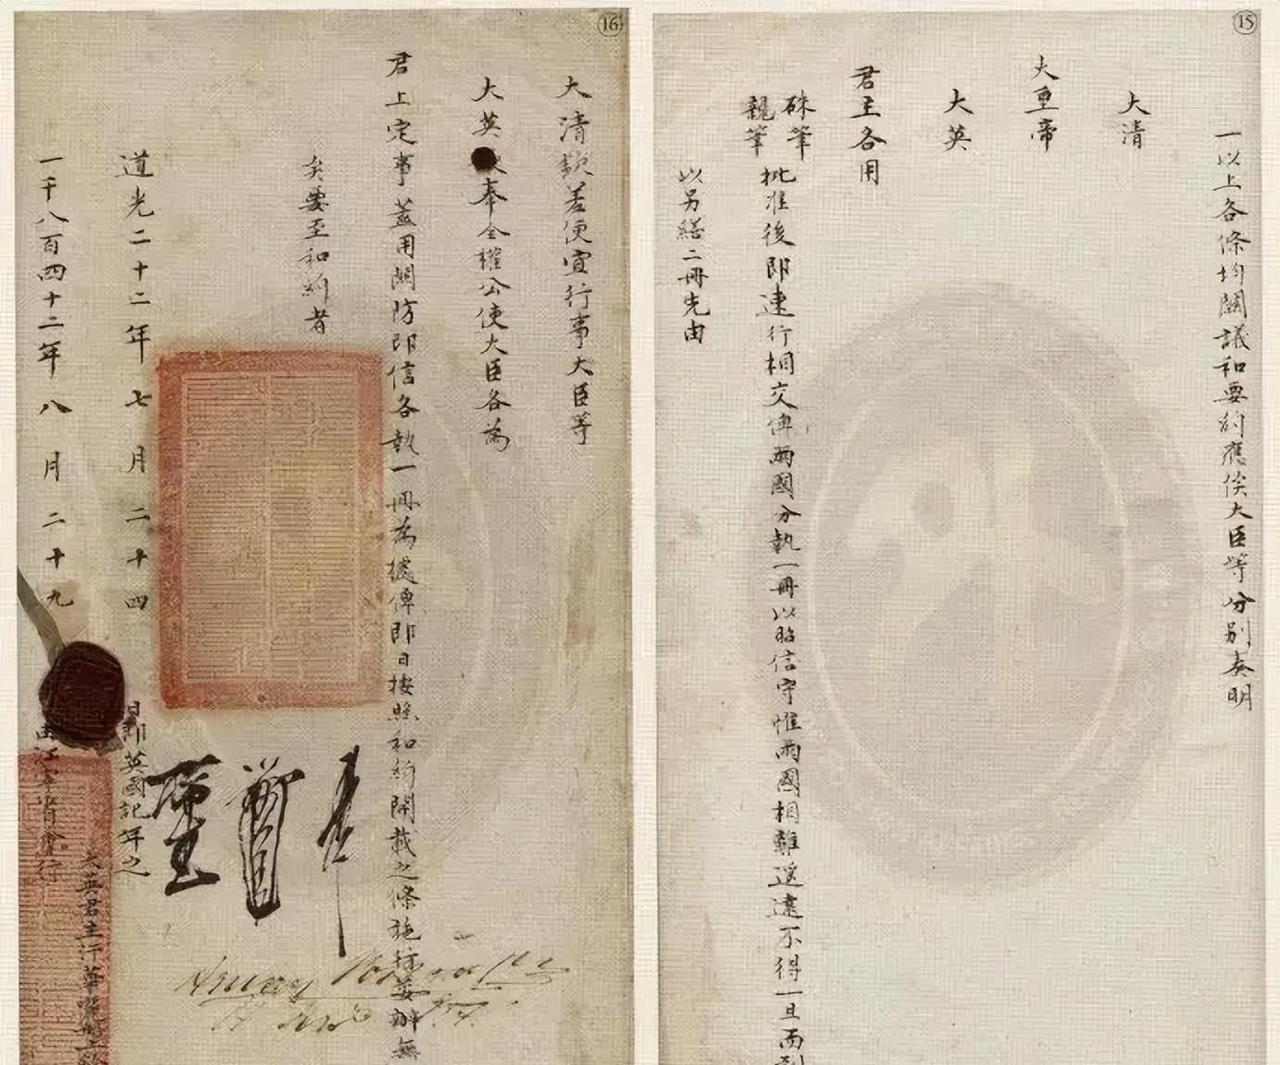 15
一以上各條均關議和要約應俟大臣等分別奏明
大清
大皇帝
大英
君主各用
硃筆
親筆
批准後即速行相交俾兩國分執一冊以昭信守惟兩國相離遥遠不得一旦而到
以另繕二冊先由
16
大清欽差便宜行事大臣等
大英奉全權公使大臣各為
君上定事蓋用關防印信各執一冊為據俾即日按照和約開載之條施行妥辦無
矣要至和約者
道光二十二年七月二十四日即英國記年之
一千八百四十二年八月二十九由江寧省會行
大英君主汗華
Henry Pottinger